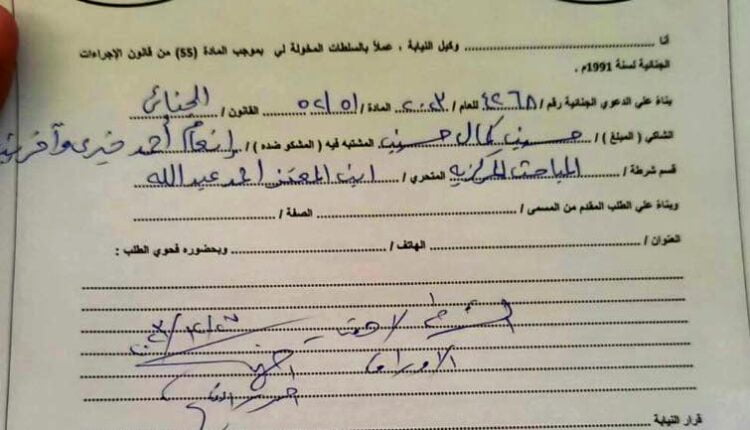 أنا ........................ وكيل النيابة ، عملاً بالسلطات المخولة لي بموجب المادة (55) من قانون الإجراءات
الجنائية لسنة 1991م .
بناءً علي الدعوي الجنائية رقم / ٤٢٦٨ للعام / ٢٠٢٣ المادة / ٥١/٥٢ القانون / الجنائي
الشاكي ( المبلغ ) / حسين كمال حسين المشتبه فيه ( المشكو ضده ) / إنعام أحمد خيري وآخرين
قسم شرطة / المباحث المركزيه المتحري / ابن المعتز احمد عبدالله
وبناءً علي الطلب المقدم من المسمى / ........................ الصفة / ........................
العنوان / ........................ الهاتف / ........................ وبحضوره فحوي الطلب :
الاوراق
قرار النيابة